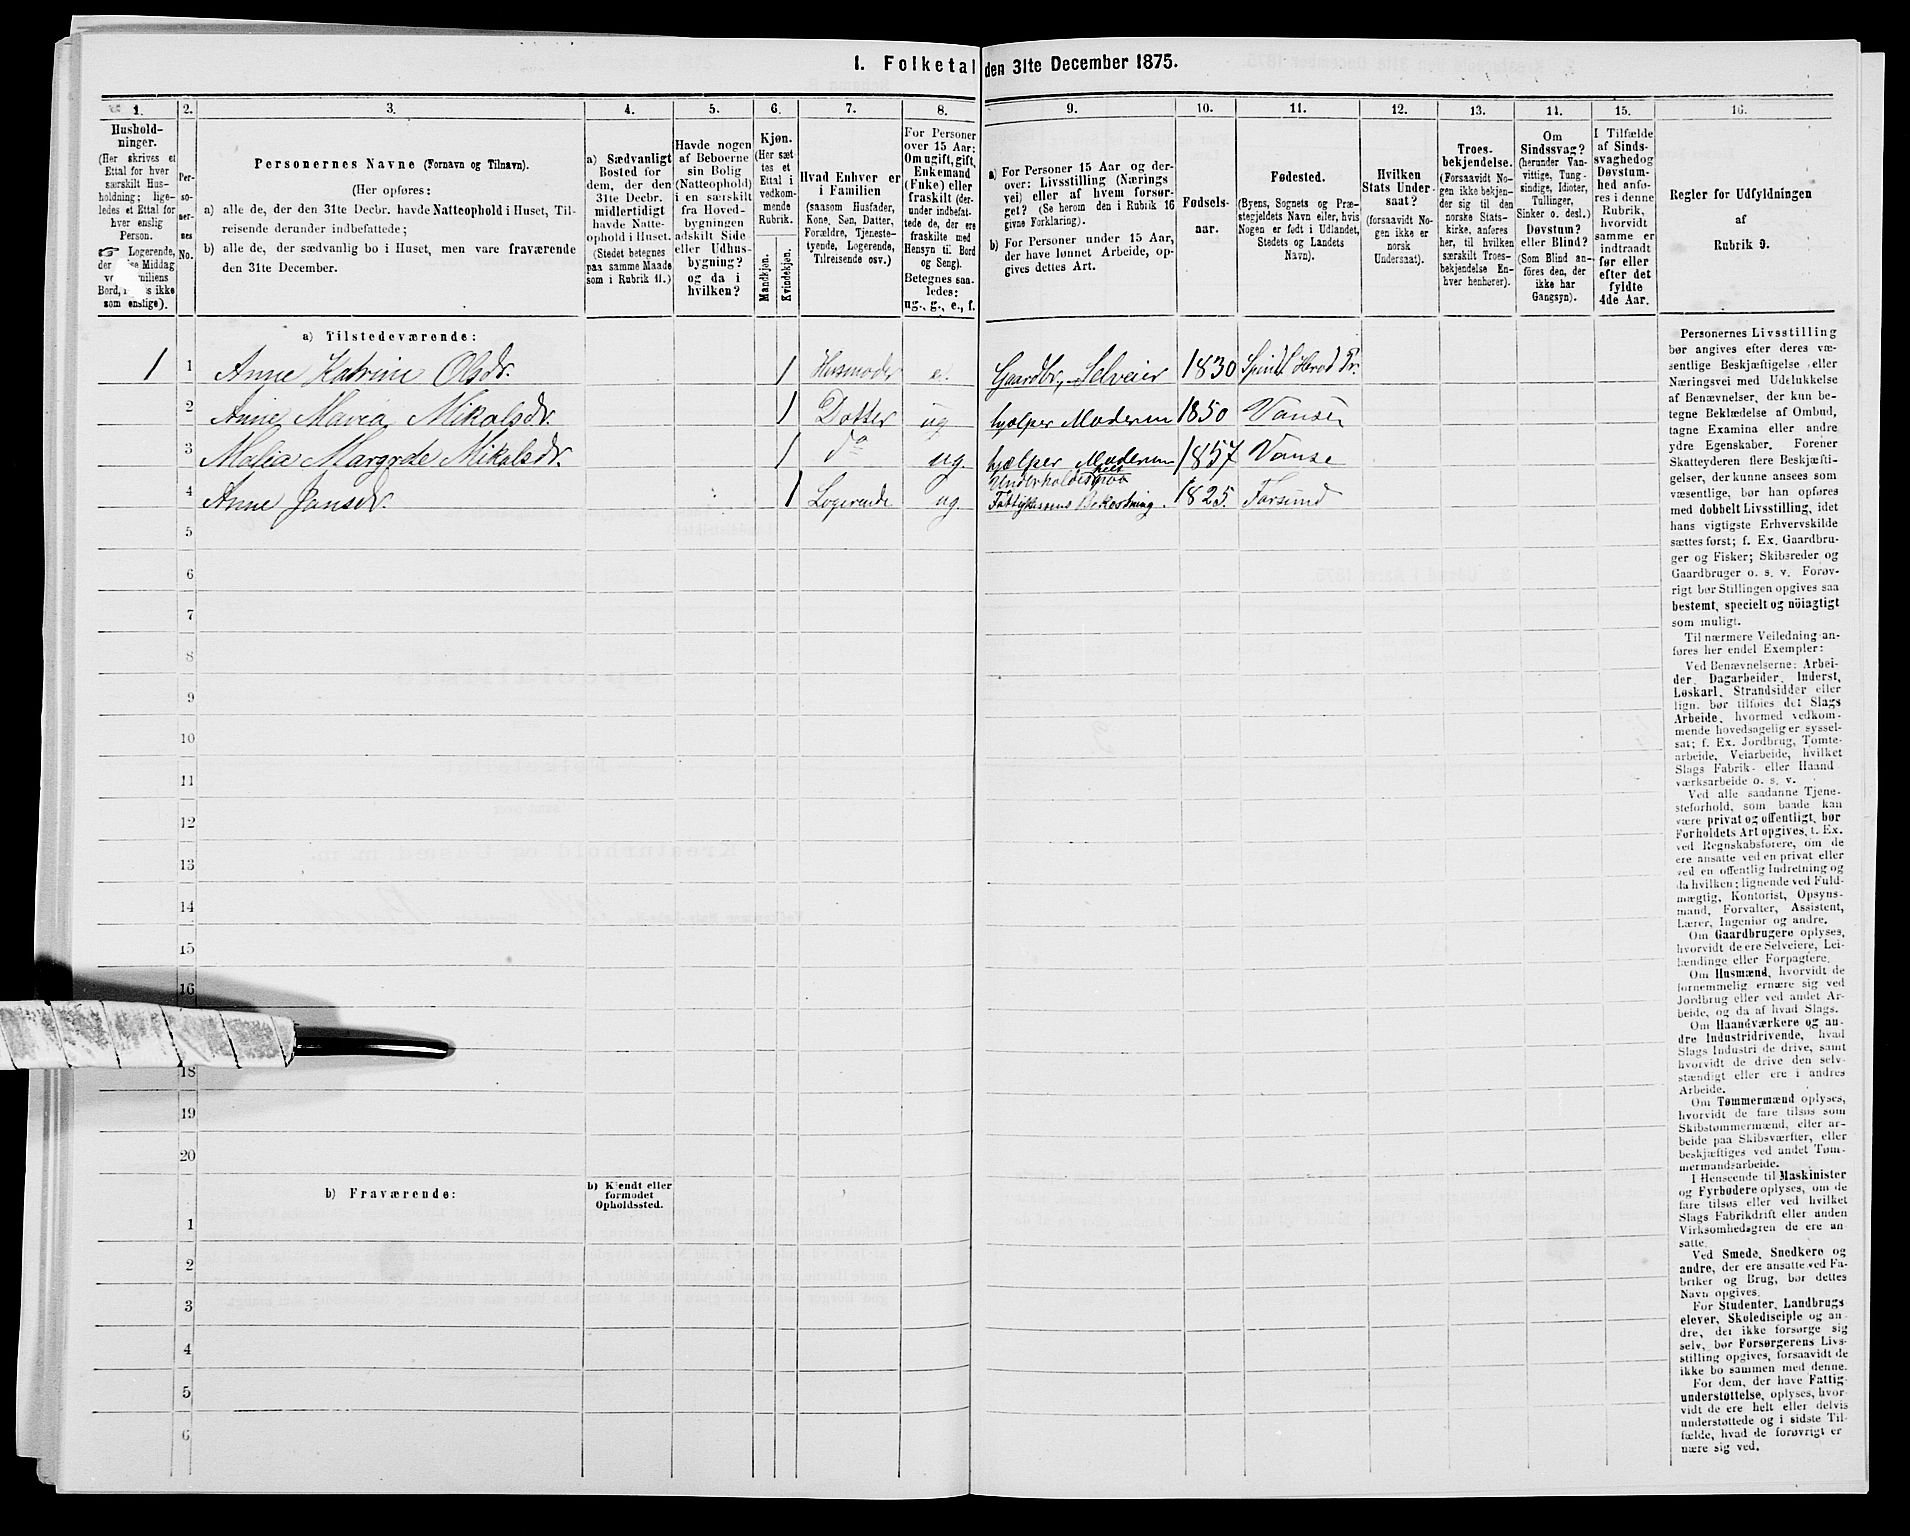 1. Folketal den 31te December 1875.
1.
2.
3.
4.
5.
6.
7.
8.
9.
10.
11.
12.
13.
14.
15.
16.
Hushold-
ninger.
(Her skrives et
Ettal for hver
særskilt Hus-
holdning; lige-
ledes et Ettal for
hver enslig
Person.
Logerende,
der Middag
Bord, ikke
som enslige).
Per-
so-
ner-
nes
No.
Personernes Navne (Fornavn og Tilnavn).
(Her opføres:
a) alle de, der den 31te Decbr. havde Natteophold i Huset, Til-
reisende derunder indbefattede;
b) alle de, der sædvanlig bo i Huset, men vare fraværende
den 31te December.
a) Sædvanligt
Bosted for
dem, der den
31te Decbr.
midlertidigt
havde Natte-
ophold i Huset.
(Stedet betegnes
paa samme Maade
som i Rubrik 11.)
Havde nogen
af Beboerne
sin Bolig
(Natteophold)
i en særskilt
fra Hoved-
bygningen
adskilt Side
eller Udhus-
bygning?
og da i
hvilken?
Kjøn.
(Her sæt
tes et
Ettal i
vedkom-
mende
Rubrik.
Mandkjøn.
Kvindekjøn.
Hvad Enhver er
i Familien
(saasom Husfader,
Kone, Søn, Datter,
Forældre, Tjeneste-
tyende, Logerende,
Tilreisende osv.)
For Personer
over 15 Aar:
Om ugift, gift,
Enkemand
(Enke) eller
fraskilt (der-
under indbefat-
tede de, der ere
fraskilte med
Hensyn til Bord
og Seng).
Betegnes saa-
ledes:
ug., g., e., f.
a) For Personer 15 Aar og der-
over: Livsstilling (Nærings
vei) eller af hvem forsør-
get? (Se herom den i Rubrik 16
givne Forklaring).
b) For Personer under 15 Aar,
der have lønnet Arbeide, op-
gives dettes Art.
Fødsels-
aar.
Fødested.
(Byens, Sognets og Præ-
stegjeldets Navn eller, hvis
Nogen er født i Udlandet,
Stedets og Landets
Navn).
Hvilken
Stats Under-
saat?
(forsaavidt No-
gen ikke er
norsk
Undersaat).
Troes-
bekjendelse.
(Forsaavidt No-
gen ikke bekjen-
der sig til den
norske Stats-
kirke, anføres
her, til hvilken
særskilt Troes-
bekjendelse En-
hver henhører).
Om
Sindssvag?
(herunder Van-
vittige, Tung-
sindige, Idioter,
Tullinger,
Sinker o. desl.)
Døvstum?
eller Blind?
(Som Blind an-
føres den, der
ikke har
Gangsyn).
I Tilfælde
af Sinds-
svaghed og
Døvstum-
hed anfø-
res i denne
Rubrik,
hvorvidt
samme er
indtraadt
før eller
efter det
fyldte
4de Aar.
Regler for Udfyldningen
af
Rubrik 9.
a) Tilstedeværende:
1 1 Anne Katrine Olsdr. 1 Husmoder e. Gaardbr., Selveier 1830
2 Anne Maria Mikalsdr. 1 Datter ug hjælper Moderen 1850 Vanse
3 Malia Margrete Mikalsdr. 1 do ug. hjælper Moderen 1857 Vanse
4 Anne Jansdr. 1 Logerende ug. Underholdes paa Fattigkassens Bekostning. 1825. Farsund
5
6
7
8
9
10
11
12
13
14
15
16
18
19
20
b) Fraværende:
b) Kjendt eller
formodet
Opholdssted.
1
2
3
4
5
6
Personernes Livsstilling
bør angives efter deres væ-
sentlige Beskjæftigelse eller
Næringsvei med Udelukkelse
af Benævnelser, der kun be-
tegne Beklædelse af Ombud,
tagne Examina eller andre
ydre Egenskaber. Forener
Skatteyderen flere Beskjæfti-
gelser, der kunne ansees som
væsentlige, bør han opføres
med dobbelt Livsstilling, idet
hans vigtigste Erhvervskilde
sættes først; f. Ex. Gaardbru-
ger og Fisker; Skibsreder og
Gaardbruger o. s. v. Forøv-
rigt bør Stillingen opgives saa
bestemt, specielt og nöiagtigt
som muligt.
Til nærmere Veiledning an-
føres her endel Exempler:
Ved Benævnelserne: Arbei-
der, Dagarbeider, Inderst,
Løskarl, Strandsidder eller
lign. bør tilføies det Slags
Arbeide, hvormed vedkom-
mende hovedsagelig er syssel-
sat; f. Ex. Jordbrug, Tomte-
arbeide, Veiarbeide, hvilket
Slags Fabrik- eller Haand
værksarbeide o. s. v.
Ved alle saadanne Tjene-
steforhold, som baade kan
være privat og offentligt, bør
Forholdets Art opgives, t. Ex.
ved Regnskabsførere, om de
ere ansatte ved en privat eller
ved en offentlig Indretning og
da hvilken; lignende ved Fuld-
mægtig, Kontorist, Opsyns-
mand, Forvalter, Assistent,
Lærer, Ingeniør og andre.
Om Gaardbrugere oplyses,
hvorvidt de ere Selveiere, Lei-
lændinge eller Forpagtere.
Om Husmænd, hvorvidt de
fornemmelig ernære sig ved
Jordbrug eller ved andet Ar-
beide, og da af hvad Slags.
Om Haandværkere og an-
dre Industridrivende, hvad
Slags Industri de drive, samt
hvorvidt de drive den selv-
stændigt eller ere i andres
Arbeide.
Om Tømmermænd oplyses,
hvorvidt de fare tilsøs som
Skibstømmermænd, eller ar-
beide paa Skibsværfter, eller
beskjæftiges ved andet Tøm-
mermandsarbeide.
I Henseende til Maskinister
og Fyrbødere oplyses, om de
fare tilsøs eller ved hvilket
Slags Fabrikdrift eller anden
Virksomhedsgren de ere an-
satte.
Ved Smede, Snedkere og
andre, der ere ansatte ved Fa-
briker og Brug, bør dettes
Navn opgives.
For Studenter, Landbrugs
elever, Skoledisciple og an-
dre, der ikke forsørge sig
selv, bør Forsørgerens Livs-
stilling opgives, forsaavidt de
ikke bo sammen med denne.
For dem, der have Fattig-
understøttelse, oplyses, hvor-
vidt de ere helt eller delvis
understøttede og i sidste Til-
fælde, hvad de forøvrigt er
nære sig ved.